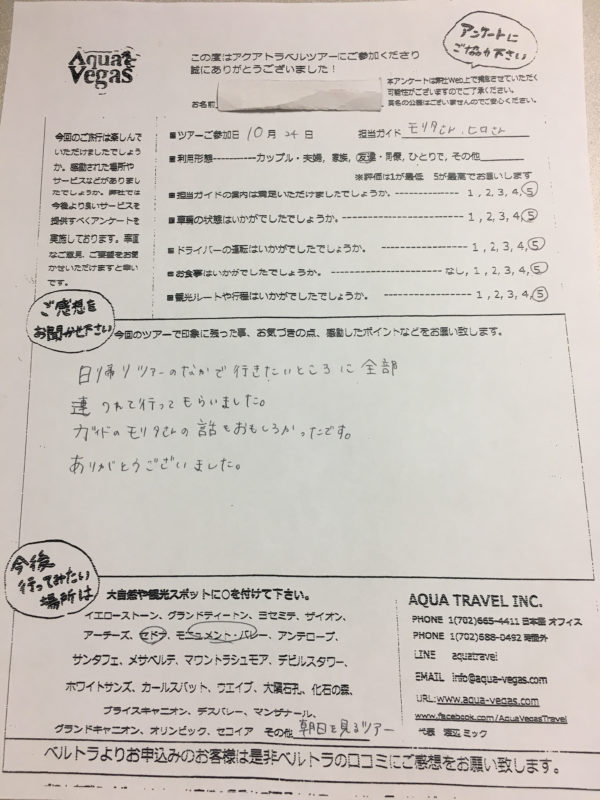 Aqua Vegas
この度はアクアトラベルツアーにご参加くださり
誠にありがとうございました！
アンケートに
ご協力下さい
本アンケートは弊社Web上で掲載させていただく
可能性がございますのでご了承ください。
実名の公開はございませんのでご安心ください。
お名前
今回のご旅行は楽しんで
いただけましたでしょう
か。感動された場所や
サービスなどがありまし
たでしょうか。弊社では
今後より良いサービスを
提供すべくアンケートを
実施しております。率直
なご意見、ご要望をお聞
かせいただけますと幸い
です。
■ツアーご参加日 10 月 24 日 担当ガイド モリタさん、ヒロさん
■利用形態-----------カップル・夫婦, 家族, 友達・同僚, ひとりで, その他
※評価は1が最低 5が最高でお願いします
■担当ガイドの案内は満足いただけましたでしょうか。 ---------------- 1 , 2, 3, 4, 5
■車輌の状態はいかがでしたでしょうか。 ---------------------- 1 , 2, 3, 4, 5
■ドライバーの運転はいかがでしたでしょうか。 ------------------- 1 , 2, 3, 4, 5
■お食事はいかがでしたでしょうか。 ---------------------- なし, 1, 2, 3, 4, 5
■観光ルートや行程はいかがでしたでしょうか。 ------------------- 1 , 2, 3, 4, 5
ご感想を
お聞かせ下さい
今回のツアーで印象に残った事、お気づきの点、感動したポイントなどをお願い致します。
日帰りツアーのなかで行きたいところに全部
連れて行ってもらいました。
ガイドのモリタさんの話もおもしろかったです。
ありがとうございました。
今後
行ってみたい
場所は
大自然や観光スポットに〇を付けて下さい。
イエローストーン、グランドティートン、ヨセミテ、ザイオン、
アーチーズ、セドナ、モニュメント・バレー、アンテロープ、
サンタフェ、メサベルデ、マウントラシュモア、デビルスタワー、
ホワイトサンズ、カールスバット、ウエイブ、大隕石孔、化石の森、
ブライスキャニオン、デスバレー、マンザナール、
グランドキャニオン、オリンピック、セコイア その他 朝日を見るツアー
AQUA TRAVEL INC.
PHONE 1(702)665-4411 日本語 オフィス
PHONE 1(702)688-0492 時間外
LINE aquatravel
EMAIL info@aqua-vegas.com
URL:www.aqua-vegas.com
www.facebook.com/AquaVegasTravel
代表 渡辺 ミック
ベルトラよりお申込みのお客様は是非ベルトラの口コミにご感想をお願い致します。